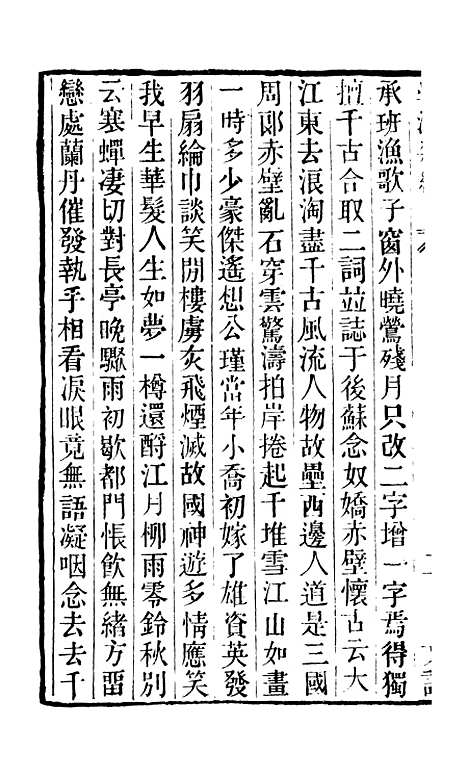 承班漁歌子窗外曉鶯殘月只改二字增一字焉得獨
擅千古合取二詞並誌于後蘇念奴嬌赤壁懷古云大
江東去浪淘盡千古風流人物故壘西邊人道是三國
周郎赤壁亂石穿雲驚濤拍岸捲起千堆雪江山如畫
一時多少豪傑遙想公瑾當年小喬初嫁了雄資英發
羽扇綸巾談笑閒樓虜灰飛煙滅故國神遊多情應笑
我早生華髮人生如夢一樽還酹江月柳雨零鈴秋別
云寒蟬凄切對長亭晚驟雨初歇都門悵飲無緒方畱
戀處蘭丹催發執乎相看淚眼竟無語凝咽念去去千